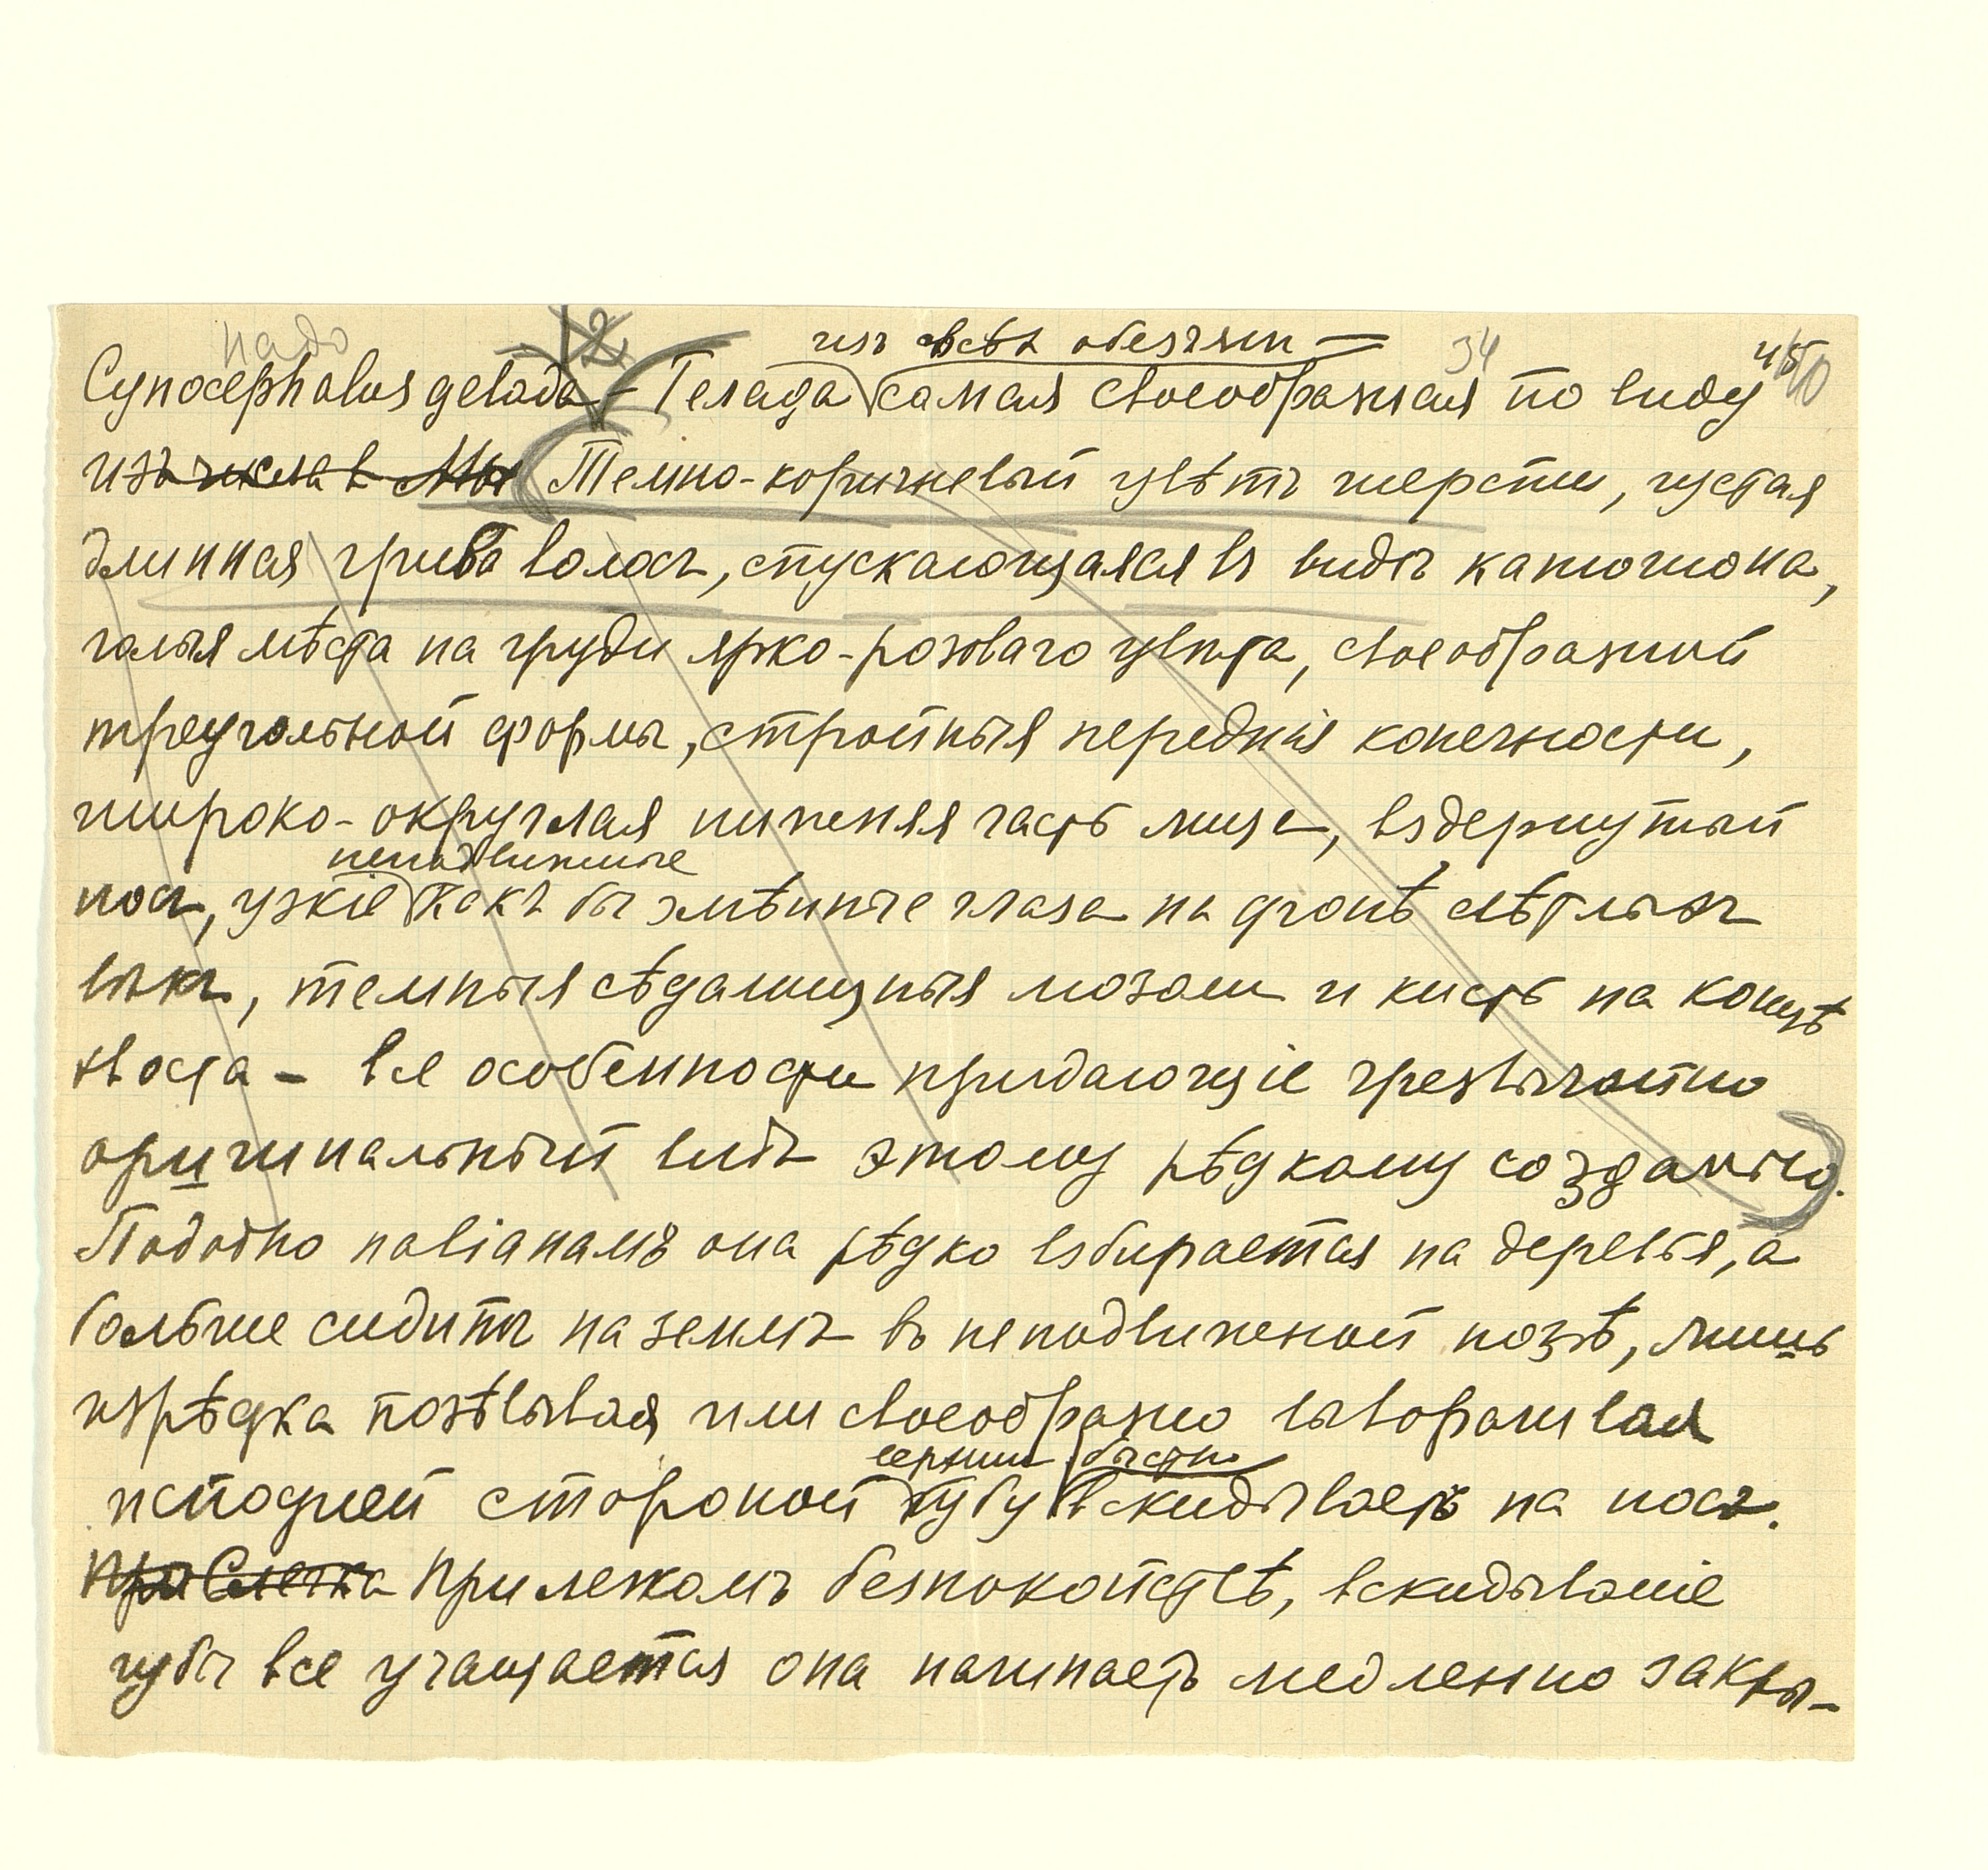 надо
2
изъ всѣхъ обезьянъ —
34
45
40
Cynocephalus gelada – Гелада самая своеобразная по виду
изъ числа в Мы Темно-коричневый цвѣтъ шерсти, густая
длинная грива волосъ, спускающаяся въ видѣ капюшона,
голыя мѣста на груди ярко-розоваго цвѣта, своеобразной
треугольной формы, стройныя переднія конечности,
широко-округлая нижняя часть лица, вздернутый
неподвижные
носъ, узкіе какъ бы змѣиные глаза на фонѣ свѣтлыхъ
вѣкъ, темныя сѣдалищныя мозоли и кисть на концѣ
хвоста – все особенности придающіе чрезвычайно
оригинальный видъ этому рѣдкому созданію.
Подобно павіанамъ она рѣдко взбирается на деревья, а
больше сидитъ на землѣ въ неподвижной позѣ, лишь
изрѣдка позѣвывая или своеобразно выворачивая
верхнюю быстро
исподней стороной губу вскидываетъ на носъ.
При Слегка При легкомъ безпокойствѣ, вскидываніе
губы все учащается она начинаетъ медленно закры-